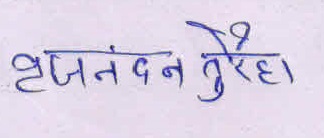 बृजनंदन तुरैहा